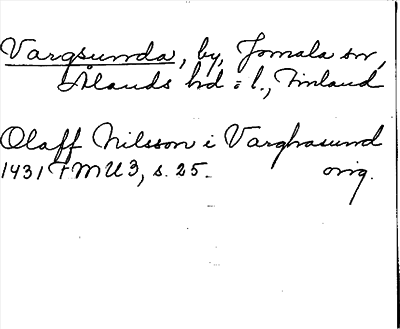 Vargsunda, by, Jomala sn,
Ålands hd = l., Finland
Olaff Nilsson i Varghasund
1431 FMU 3, s. 25. orig.